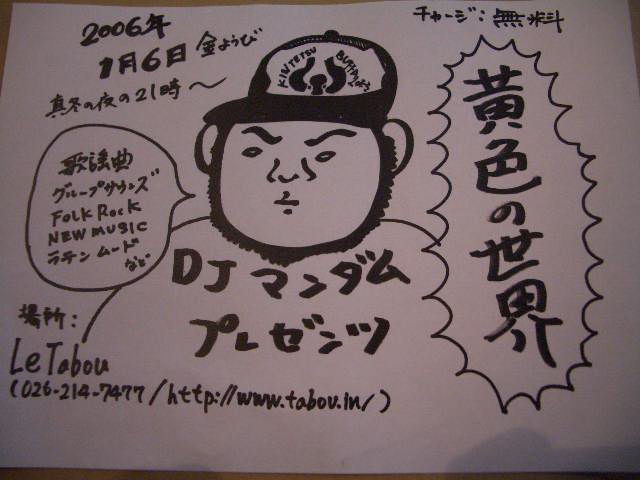 2006年
1月6日 金ようび
真冬の夜の21時～
チャージ：無料
KINTETSU
黄色の世界
歌謡曲
グループサウンズ
FOLK ROCK
NEW MUSIC
ラテン ムード
など
DJ マンダム
プレゼンツ
場所：
Le Tabou
(026-214-7477/http://www.tabou.in/)